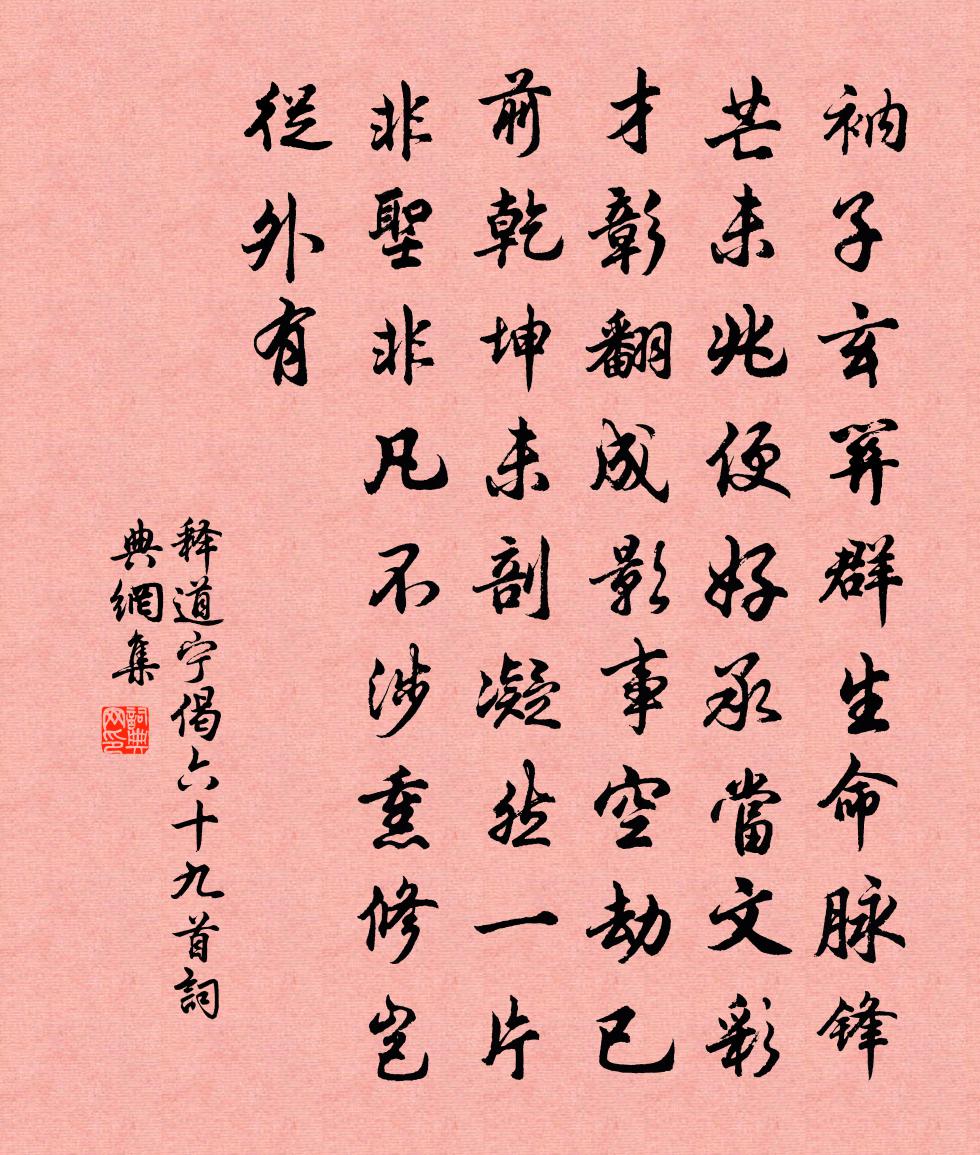 衲子玄關群生命脉锋
芒未兆便好承當文彩
才彰翻成影事空劫已
前乾坤未剖凝然一片
非聖非凡不涉熏修岂
從外有
释道宁偈六十九首詞
典網集
詞典
网印